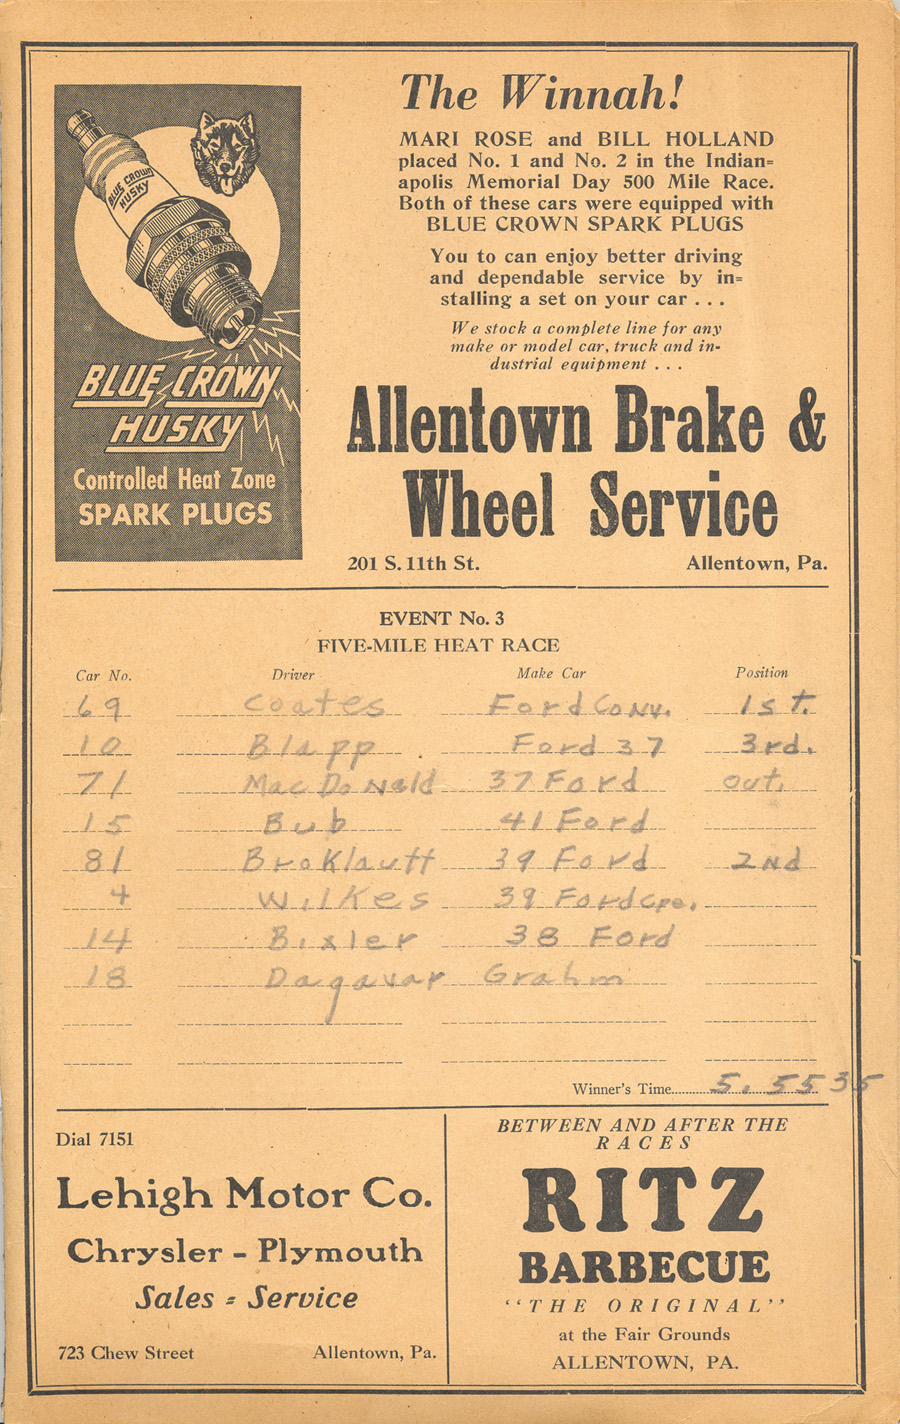 BLUE CROWN
HUSKY
BLUE CROWN
HUSKY
Controlled Heat Zone
SPARK PLUGS
The Winnah!
MARI ROSE and BILL HOLLAND
placed No. 1 and No. 2 in the Indian=
apolis Memorial Day 500 Mile Race.
Both of these cars were equipped with
BLUE CROWN SPARK PLUGS
You to can enjoy better driving
and dependable service by in=
stalling a set on your car . . .
We stock a complete line for any
make or model car, truck and in-
dustrial equipment . . .
Allentown Brake &
Wheel Service
201 S. 11th St. Allentown, Pa.
EVENT No. 3
FIVE-MILE HEAT RACE
Car No. Driver Make Car Position
69 Coates Ford Conv. 1st.
10 Blapp Ford 37 3rd.
71 MacDonald 37 Ford out.
15 Bub 41 Ford
81 Broklautt 39 Ford 2nd
4 Wilkes 39 Ford Cpe.
14 Bixler 38 Ford
18 Dagavar Grahm
Winner's Time 5.5535
Dial 7151
Lehigh Motor Co.
Chrysler - Plymouth
Sales = Service
723 Chew Street Allentown, Pa.
BETWEEN AND AFTER THE
RACES
RITZ
BARBECUE
"THE ORIGINAL"
at the Fair Grounds
ALLENTOWN, PA.